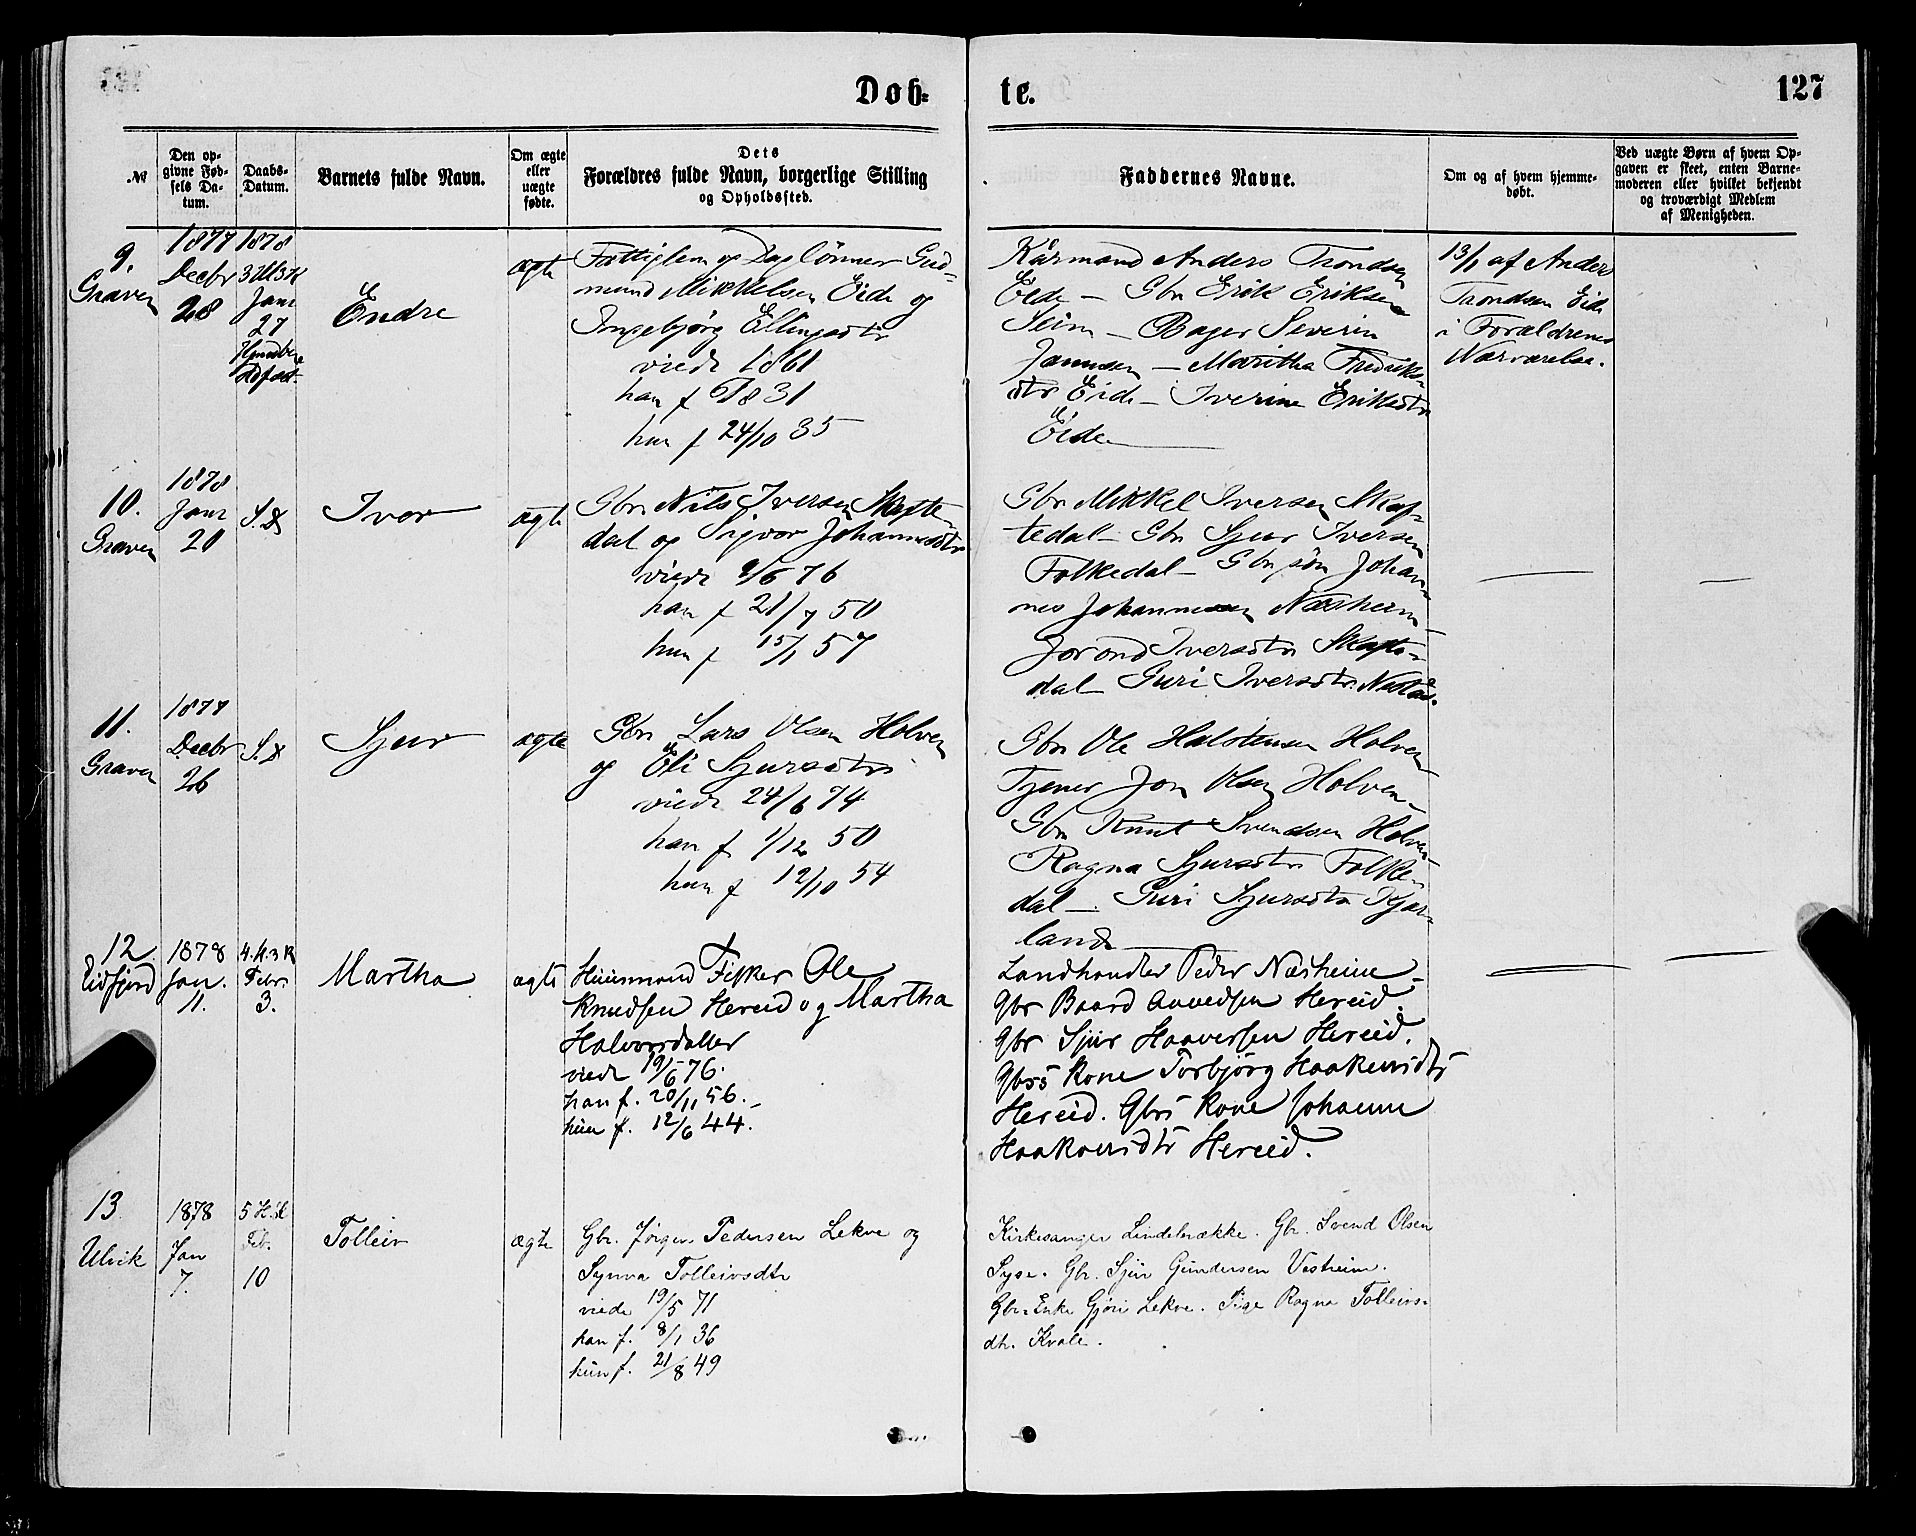 Døb-
te.
127
№
Den op-
givne Fød-
sels Da-
tum.
Daabs-
Datum.
Barnets fulde Navn.
Om ægte
eller
uægte
fødte.
Dets
Forældres fulde Navn, borgerlige Stilling
og Opholdssted.
Faddernes Navne.
Om og af hvem hjemme-
døbt.
Ved uægte Børn af hvem Op-
gaven er skeet, enten Barne-
moderen eller hvilket bekjendt
og troværdigt Medlem
af Menigheden.
9.
Graven
1877
Decbr
28
1878
Janr
27
Endre
ægte
Fattiglem og Daglönner Gud-
mund Mikkelsen Eide og
Ingebjørg Ellingsdtr
viede 1861
han f 1831
hun f 24/10 35
Kårmand Anders Trondsen
Eide - Gbr Erik Eriksen
Seim - Bager Severin
Jannsen - Maritha Fredriks-
dtr Eide - Iverine Eriksdtr
Eide
13/1 af Anders
Trondsen Eide
i Forældrenes
Nærværelse.
10.
Graven
1878
Janr
20
S.D
Ivar
ægte
Gbr Nils Iversen Skafte-
dal og Sigvor Johannesdtr
viede 9/6 76
han f 21/7 50
hun f 15/1 57
Gbr Mikkel Iversen Skaf-
tedal - Gbr Sjur Iversen
Folkedal - Gbr søn Johan-
nes Johannesen Næsheim -
Jorond Iversdtr Skafte-
dal - Guri Iversdtr
11.
Graven
1877
Decbr
26
S.D
Sjur
ægte
Gbr Lars Olsen Holven
og Eli Sjursdtr
viede 24/6 74
han f 1/12 50
hun f 12/10 54
Gbr Ole Halstensen Holven
Tjener Jon Olsen Holven -
Gbr Knut Svendsen Holven
Ragna Sjursdtr Folke-
dal - Guri Sjursdtr Kjær-
land
12
Eidfjord
1878
Jan.
11.
Febr.
3.
Martha
ægte
Huusmand Fisker Ole
Knudsen Hereid og Martha
Halvorsdatter
viede 19/6 76.
han f. 20/11 56.
hun f. 12/6 44.
Landhandler Peder Næsheim -
Gbr Baard Hereid.
Gbr Sjur Haaversen Hereid.
Gbrs Kone Torbjörg Haakensdtr
Hereid. Gbrs Kone Johanne
Haakonsdtr Hereid.
13
Ulvik
1878
Jan
7.
Feb.
10
Tolleiv
ægte
Gbr. Jörgen Pedersen Lekve og
Synva Tolleivsdtr
viede 19/5 71
han f. 8/1 36
hun f. 21/8 49
Kirkesanger Lindebrække. Gbr. Svend Olsen
Syse. Gbr. Sjur Gundersen Vestheim.
Gbr. Enke Gjöri Lekve. Pige Ragna Tolleivs-
dtr. Kvale.